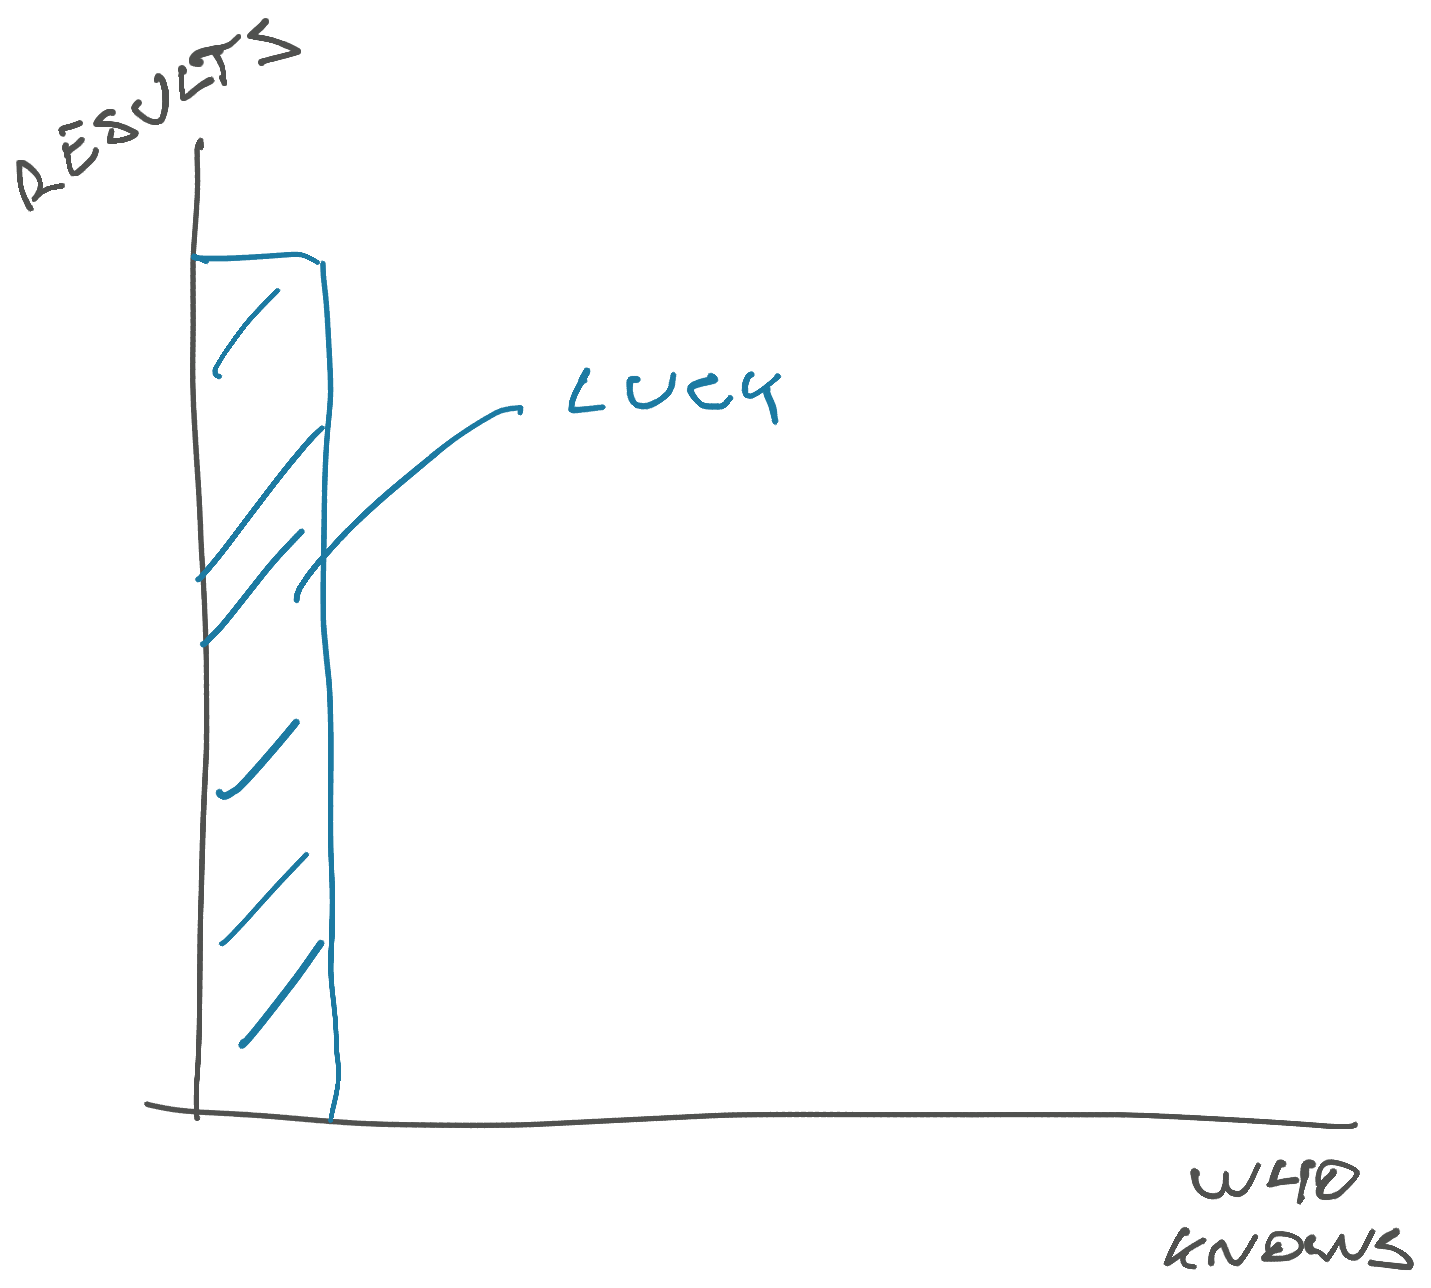 RESULTS
LUCK
WHO
KNOWS